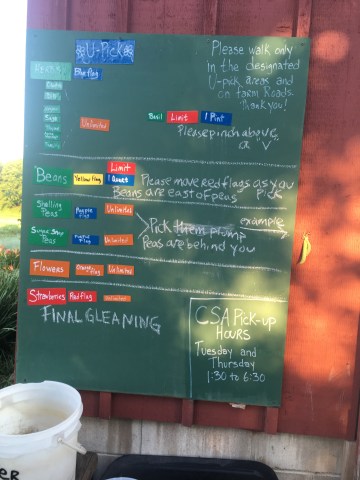 U-Pick
Please walk only
in the designated
U-pick areas and
on farm Roads.
Thank you!
Herbs Blue flag
Unlimited
Basil Limit 1 Pint
Please pinch above
a "V"
Limit
Beans Yellow flag 1 Quart
Please move red flags as you
Pick
Beans are east of peas
Shelling
Peas
Purple
Flag
Unlimited
Sugar Snap
Peas
Flag
Unlimited
Pick them plump
example
Peas are behind you
Flowers Orange flag Unlimited
Strawberries Red flag Unlimited
FINAL GLEANING
CSA Pick-up
HOURS
Tuesday and
Thursday
1:30 to 6:30